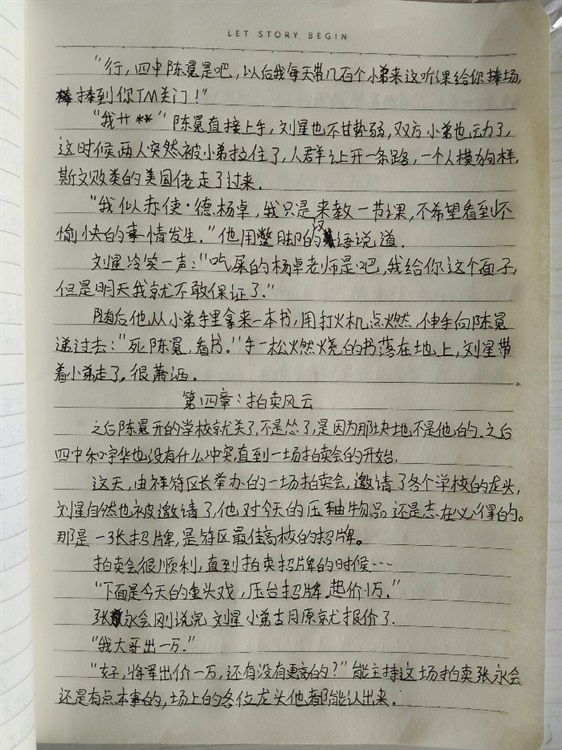 LET STORY BEGIN
"行，四中陈冕是吧，以后我每天带几百个小弟来这听课给你捧场，
捧到你TM关门！"
"我艹**"陈冕直接上手，刘星也不甘势弱，双方小弟也运力了，
这时候两人突然被小弟拉住了，人群让开一条路，一个人模狗样，
斯文败类的美国佬走了过来．
"我似赤使·德杨卓，我只是来教一节课，不希望看到不
愉快的事情发生．"他用蹩脚的汉语说道．
刘星冷笑一声："吃屎的杨卓老师是吧，我给你这个面子，
但是明天我就不敢保证了．"
随后他从小弟手里拿来一本书，用打火机点燃，伸手向陈冕
递过去："死陈冕，看书．"手一松燃烧的书落在地上，刘星带
着小弟走了，很萧洒．
第四章：拍卖风云
之后陈冕开的学校就关了，不是怂了，是因为那块地不是他的．之后
四中和宇华也没有什么冲突，直到一场拍卖会的开始．
这天，由特区长举办的一场拍卖会，邀请了各个学校的龙头，
刘星自然也被邀请了，他对今天的压轴物品还是志在必得的。
那是一张招牌，是特区最佳高校的招牌。
拍卖会很顺利，直到拍卖招牌的时候…
"下面是今天的重头戏，压台招牌，起价1万．"
张永会刚说完 刘星小弟吉月原就报价了．
"我大哥出一万．"
"好，将军出价一万，还有没有更高的？"能主持这场拍卖张永会
还是有点本事的，场上的各位龙头他都能认出来．